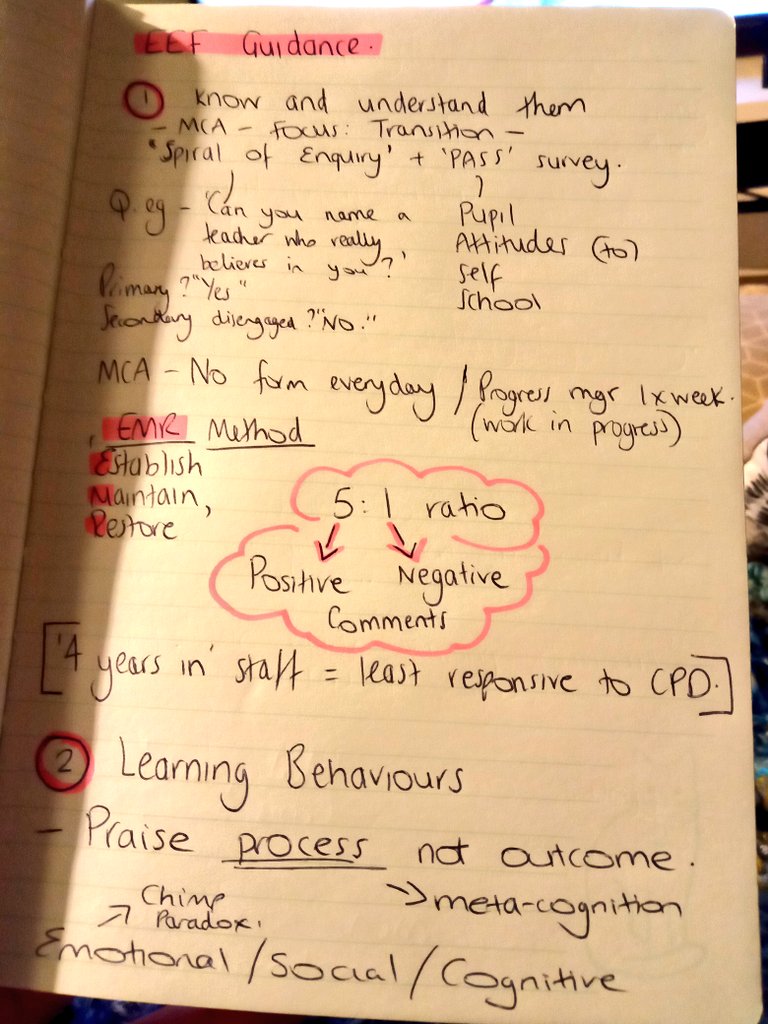 EEF Guidance.
① Know and understand them
- MCA - Focus: Transition -
'Spiral of Enquiry' + 'PASS' survey.
Q. eg - 'Can you name a
teacher who really
believes in you?'
Primary? "Yes"
Secondary disengaged? "No."
Pupil
Attitudes (to)
Self
School
MCA - No form everyday / Progress mgr 1x week.
(work in progress)
EMR Method
Establish
Maintain,
Restore
5:1 ratio
Positive Negative
Comments
['4 years in' staff = least responsive to CPD.]
② Learning Behaviours
- Praise process not outcome.
>> meta-cognition
Chimp
Paradox.
Emotional / Social / Cognitive